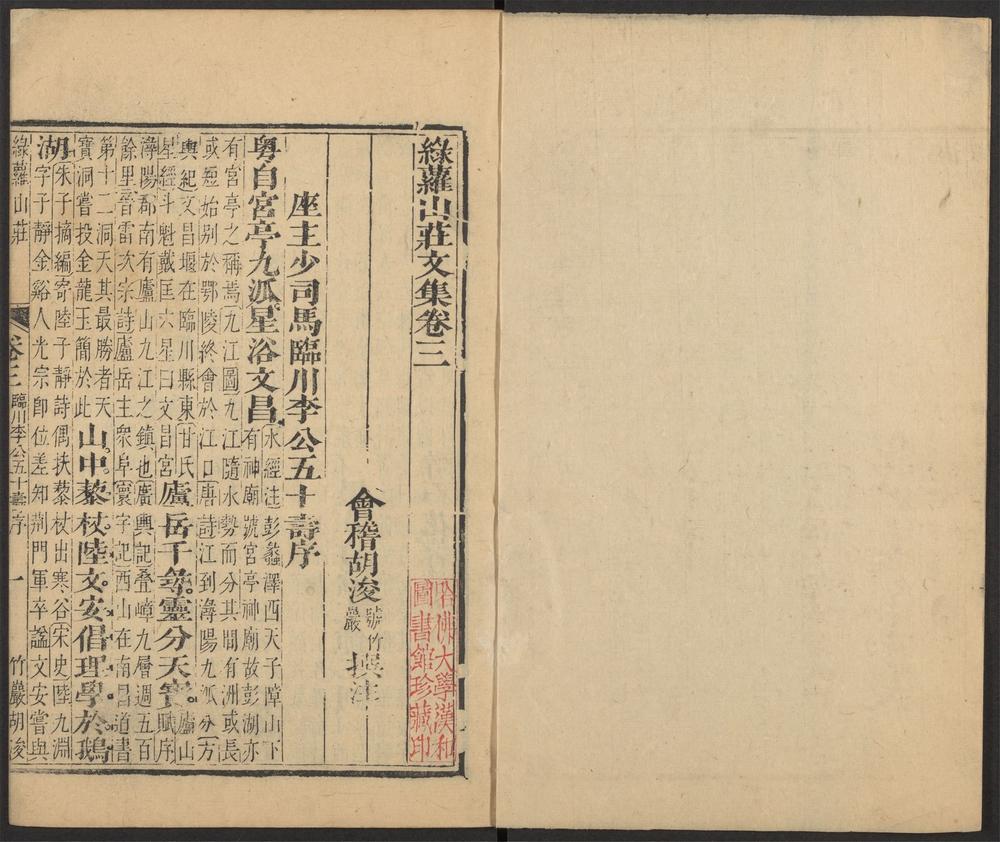 綠蘿山莊文集卷三
會稽胡浚號竹巖撰注
哈佛大學漢和圖書館珍藏印
座主少司馬臨川李公五十壽序
粵自宮亭九派星浴文昌水經注彭蠡澤西天子障山下有神廟號宮亭神廟故彭湖亦
有宮亭之稱焉九江圖九江隨水勢而分其間有洲或長
或短始别於鄂陵終會於江口唐詩江到潯陽九派分方
輿紀文昌堰在臨川縣東甘氏
星經斗魁戴匡六星曰文昌宮廬岳千尋靈分天寶賦序廬山
潯陽郡南有廬山九江之鎮也廣輿記叠嶂九層週五百
餘里晉雷次宗詩廬岳主衆阜寰宇記西山在南昌道書
第十二洞天其最勝者天
寶洞嘗投金龍玉簡於此山中藜杖陸文安倡理學於鵝
湖朱子摘編寄陸子靜詩偶扶藜杖出寒谷宋史陸九淵
字子靜金谿人光宗卽位差知荆門軍卒謚文安嘗與
綠蘿山莊 卷三 臨川李公五十壽序 一 竹巖胡浚